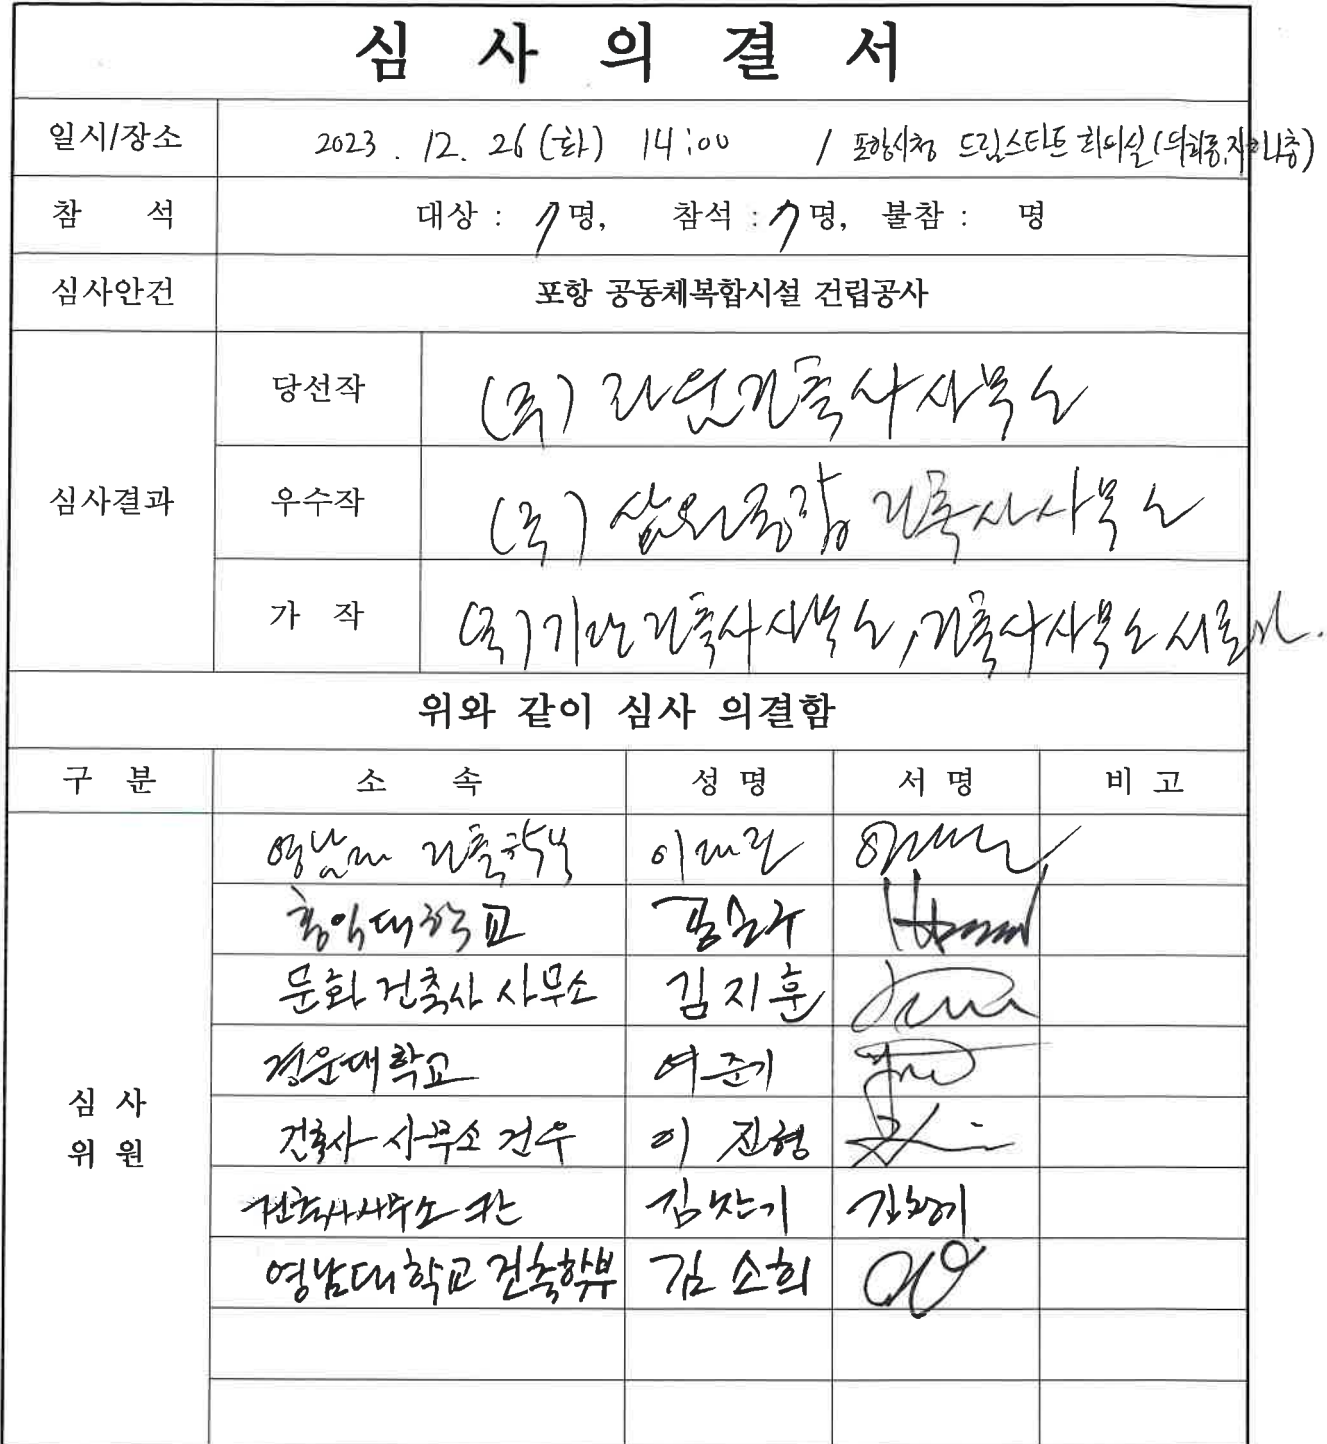 심 사 의 결 서
일시/장소 2023. 12. 26 (화) 14:00 / 포항시청 드림스타트 회의실(의회동, 지하1층)
참 석 대상 : 7명, 참석 : 7명, 불참 : 명
심사안건 포항 공동체복합시설 건립공사
심사결과
당선작 (주) 라운건축사사무소
우수작 (주) 삼원종합건축사사무소
가 작 (주)기단건축사사무소, 건축사사무소
위와 같이 심사 의결함
구 분 소 속 성 명 서 명 비 고
심 사
위 원
영남대 건축학부
홍익대학교
문화 건축사 사무소 김지훈
경운대학교 여준기
건축사 사무소 건우 이 진형
건축사사무소
영남대학교 건축학부 김소희